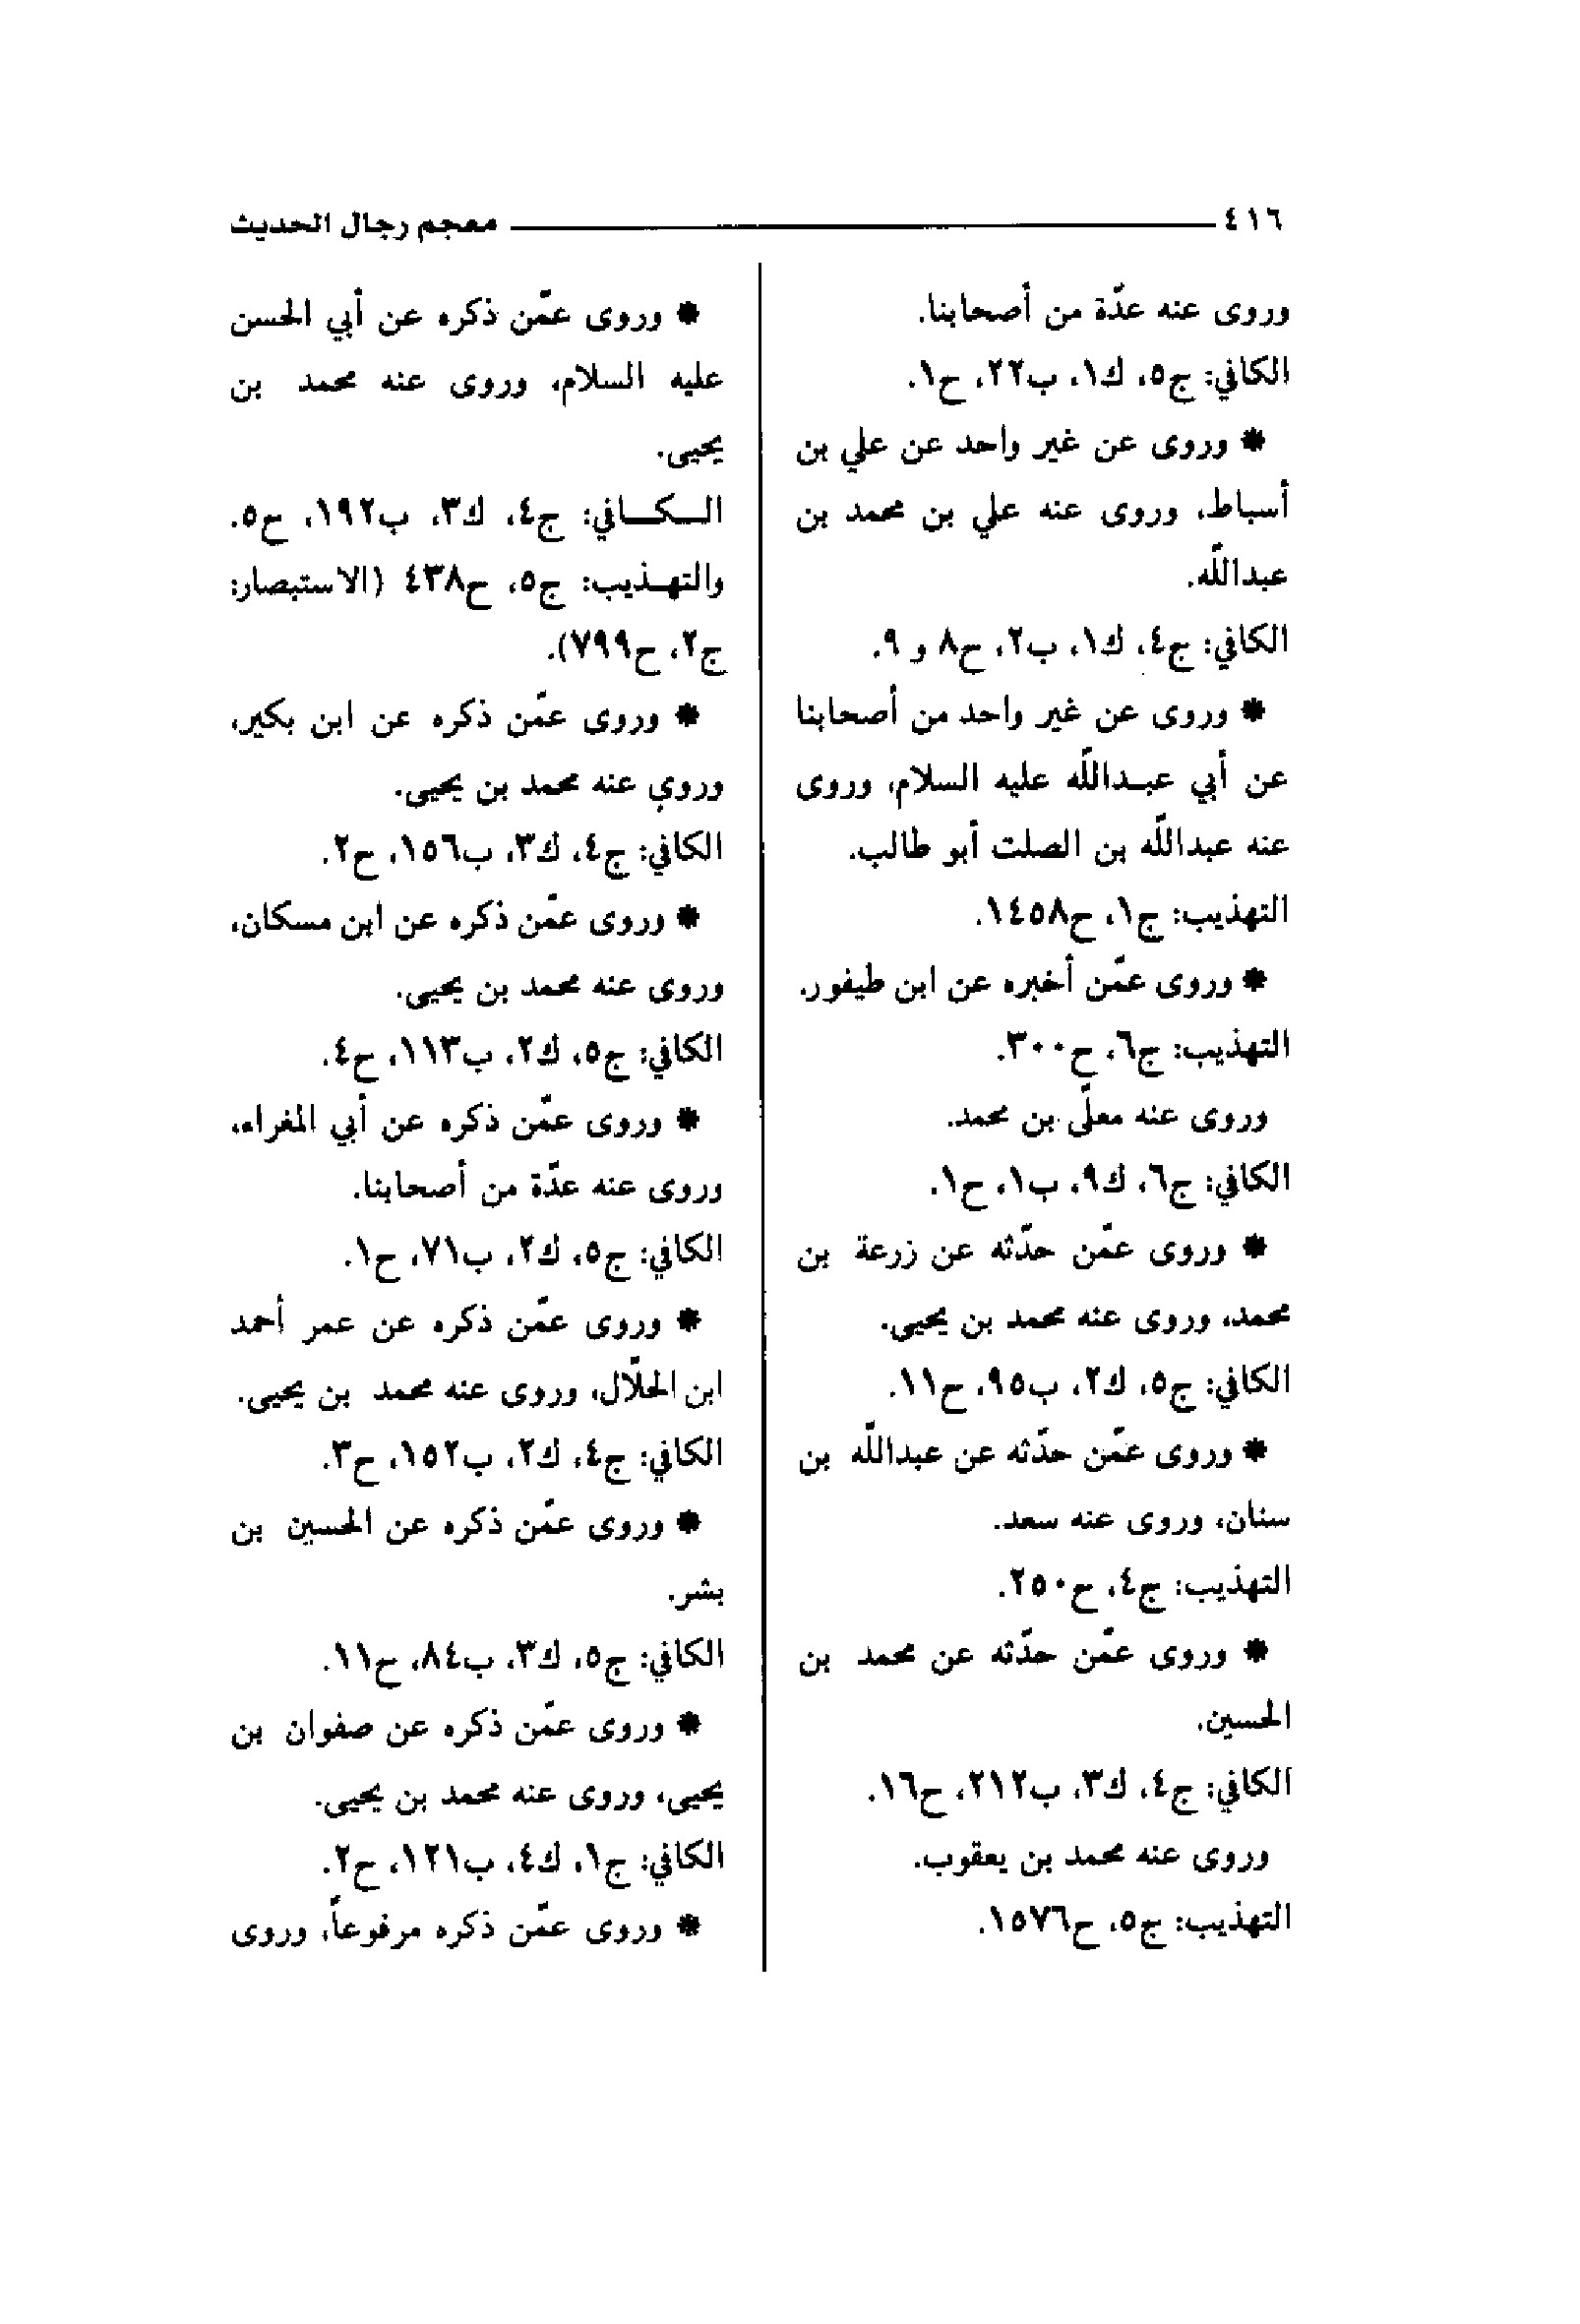 ٤١٦ معجم رجال الحديث
وروى عنه عدّة من أصحابنا.
الكافي: ج٥، ك١، ب٢٢، ح١.
* وروى عن غير واحد عن علي بن
أسباط، وروى عنه علي بن محمد بن
عبداللّه.
الكافي: ج٤، ك١، ب٢، ح٨ و ٩.
* وروى عن غير واحد من أصحابنا
عن أبي عبـداللّه عليه السلام، وروى
عنه عبداللّه بن الصلت أبو طالب.
التهذيب: ج١، ح١٤٥٨.
* وروى عمّن أخبره عن ابن طيفور.
التهذيب: ج٦، ح٣٠٠.
وروى عنه معلّى بن محمد.
الكافي: ج٦، ك٩، ب١، ح١.
* وروى عمّن حدّثه عن زرعة بن
محمد، وروى عنه محمد بن يحيى.
الكافي: ج٥، ك٢، ب٩٥، ح١١.
* وروى عمّن حدّثه عن عبداللّه بن
سنان، وروى عنه سعد.
التهذيب: ج٤، ح٢٥٠.
* وروى عمّن حدّثه عن محمد بن
الحسين.
الكافي: ج٤، ك٣، ب٢١٢، ح١٦.
وروى عنه محمد بن يعقوب.
التهذيب: ج٥، ح١٥٧٦.
* وروى عمّن ذكره عن أبي الحسن
عليه السلام، وروى عنه محمد بن
يحيى.
الـــكـــافي: ج٤، ك٣، ب١٩٢، ح٥.
والتهـذيب: ج٥، ح٤٣٨ (الاستبصار:
ج٢، ح٧٩٩).
* وروى عمّن ذكره عن ابن بكير،
وروي عنه محمد بن يحيى.
الكافي: ج٤، ك٣، ب١٥٦، ح٢.
* وروى عمّن ذكره عن ابن مسكان،
وروى عنه محمد بن يحيى.
الكافي: ج٥، ك٢، ب١١٣، ح٤.
* وروى عمّن ذكره عن أبي المغراء،
وروى عنه عدّة من أصحابنا.
الكافي: ج٥، ك٢، ب٧١، ح١.
* وروى عمّن ذكره عن عمر أحمد
ابن الحلّال، وروى عنه محمد بن يحيى.
الكافي: ج٤، ك٢، ب١٥٢، ح٣.
* وروى عمّن ذكره عن الحسين بن
بشر.
الكافي: ج٥، ك٣، ب٨٤، ح١١.
* وروى عمّن ذكره عن صفوان بن
يحيى، وروى عنه محمد بن يحيى.
الكافي: ج١، ك٤، ب١٢١، ح٢.
* وروى عمّن ذكره مرفوعاً، وروى